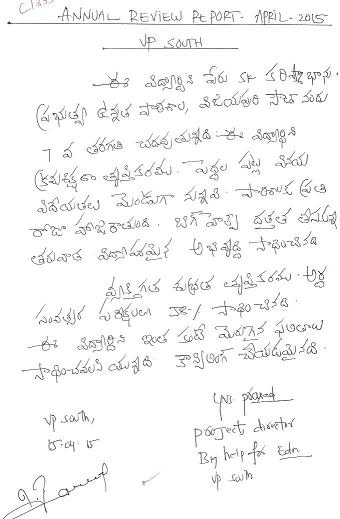 ANNUAL REVIEW REPORT - APRIL - 2015
VP SOUTH
ఈ విద్యార్థిని పేరు SK కరిష్మా భాను.
ప్రభుత్వ ఉన్నత పాఠశాల, విజయపురి సౌత్ నందు
7 వ తరగతి చదువుతున్నది. ఈ విద్యార్థిని
క్రమశిక్షణ తృప్తికరము. పెద్దల పట్ల వినయ
విధేయతలు మెండుగా ఉన్నవి. పాఠశాలకు ప్రతి
రోజూ హాజరౌతుంది. బిగ్ హెల్ప్ దత్తత తీసుకున్న
తరువాత విద్యాపరమైన అభివృద్ధి సాధించినది
వ్యక్తిగత శుభ్రత తృప్తికరము. అర్ధ
సంవత్సర పరీక్షలలో % సాధించినది.
ఈ విద్యార్థిని ఇంత కంటే మెరుగైన ఫలితాలు
సాధించవలసి యున్నది. కౌన్సిలింగ్ చేయడమైనది.
VP South,
15-04-15
prasad
project director
Big help for Edn
VP South